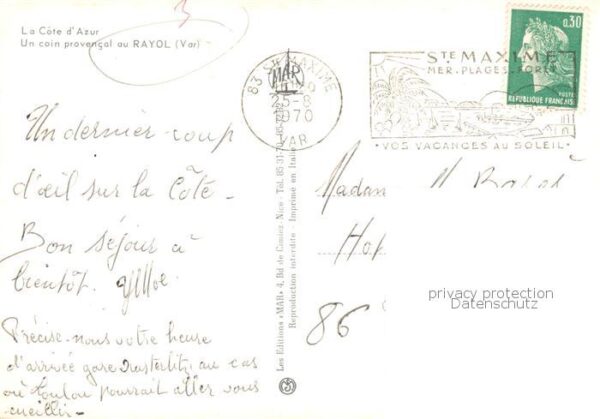 La Côte d'Azur
Un coin provençal au RAYOL (Var)
3
83 Ste MAXIME
25-8
1970
VAR
STE MAXIME
MER. PLAGES.
VOS VACANCES AU SOLEIL
0,30
POSTES
REPUBLIQUE FRANÇAISE
Un dernier coup
d'œil sur la Côte -
Bon séjour à
bientôt.
Précise-nous votre heure
d'arrivée gare d'Austerlitz, au cas
où Loulou pourrait aller vous
cueillir -
Les Editions «MAR» 4, Bd de Cimiez, Nice - Tél. 85-31-70
Reproduction interdite - Imprimé en Italie
MAR
Madam
Hot
86
privacy protection
Datenschutz